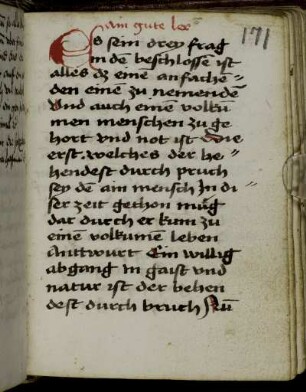 ain gute ler
171
Es sein drey frag
In dē beschlosse ist
alles dz eine anfachē=
den eine zu nemenden
Vnd auch einē volku
men menschen zu ge
hort vnd not ist Die
erst. welches der be=
hendest durch pruch
sey dē ain mensch In di=
ser zeit gethon mug
dar durch er kum zu
einē volkumē leben
Antwurt Ein willig
abgang In gaist vnd
natur ist der behen
dest durch bruch Nū